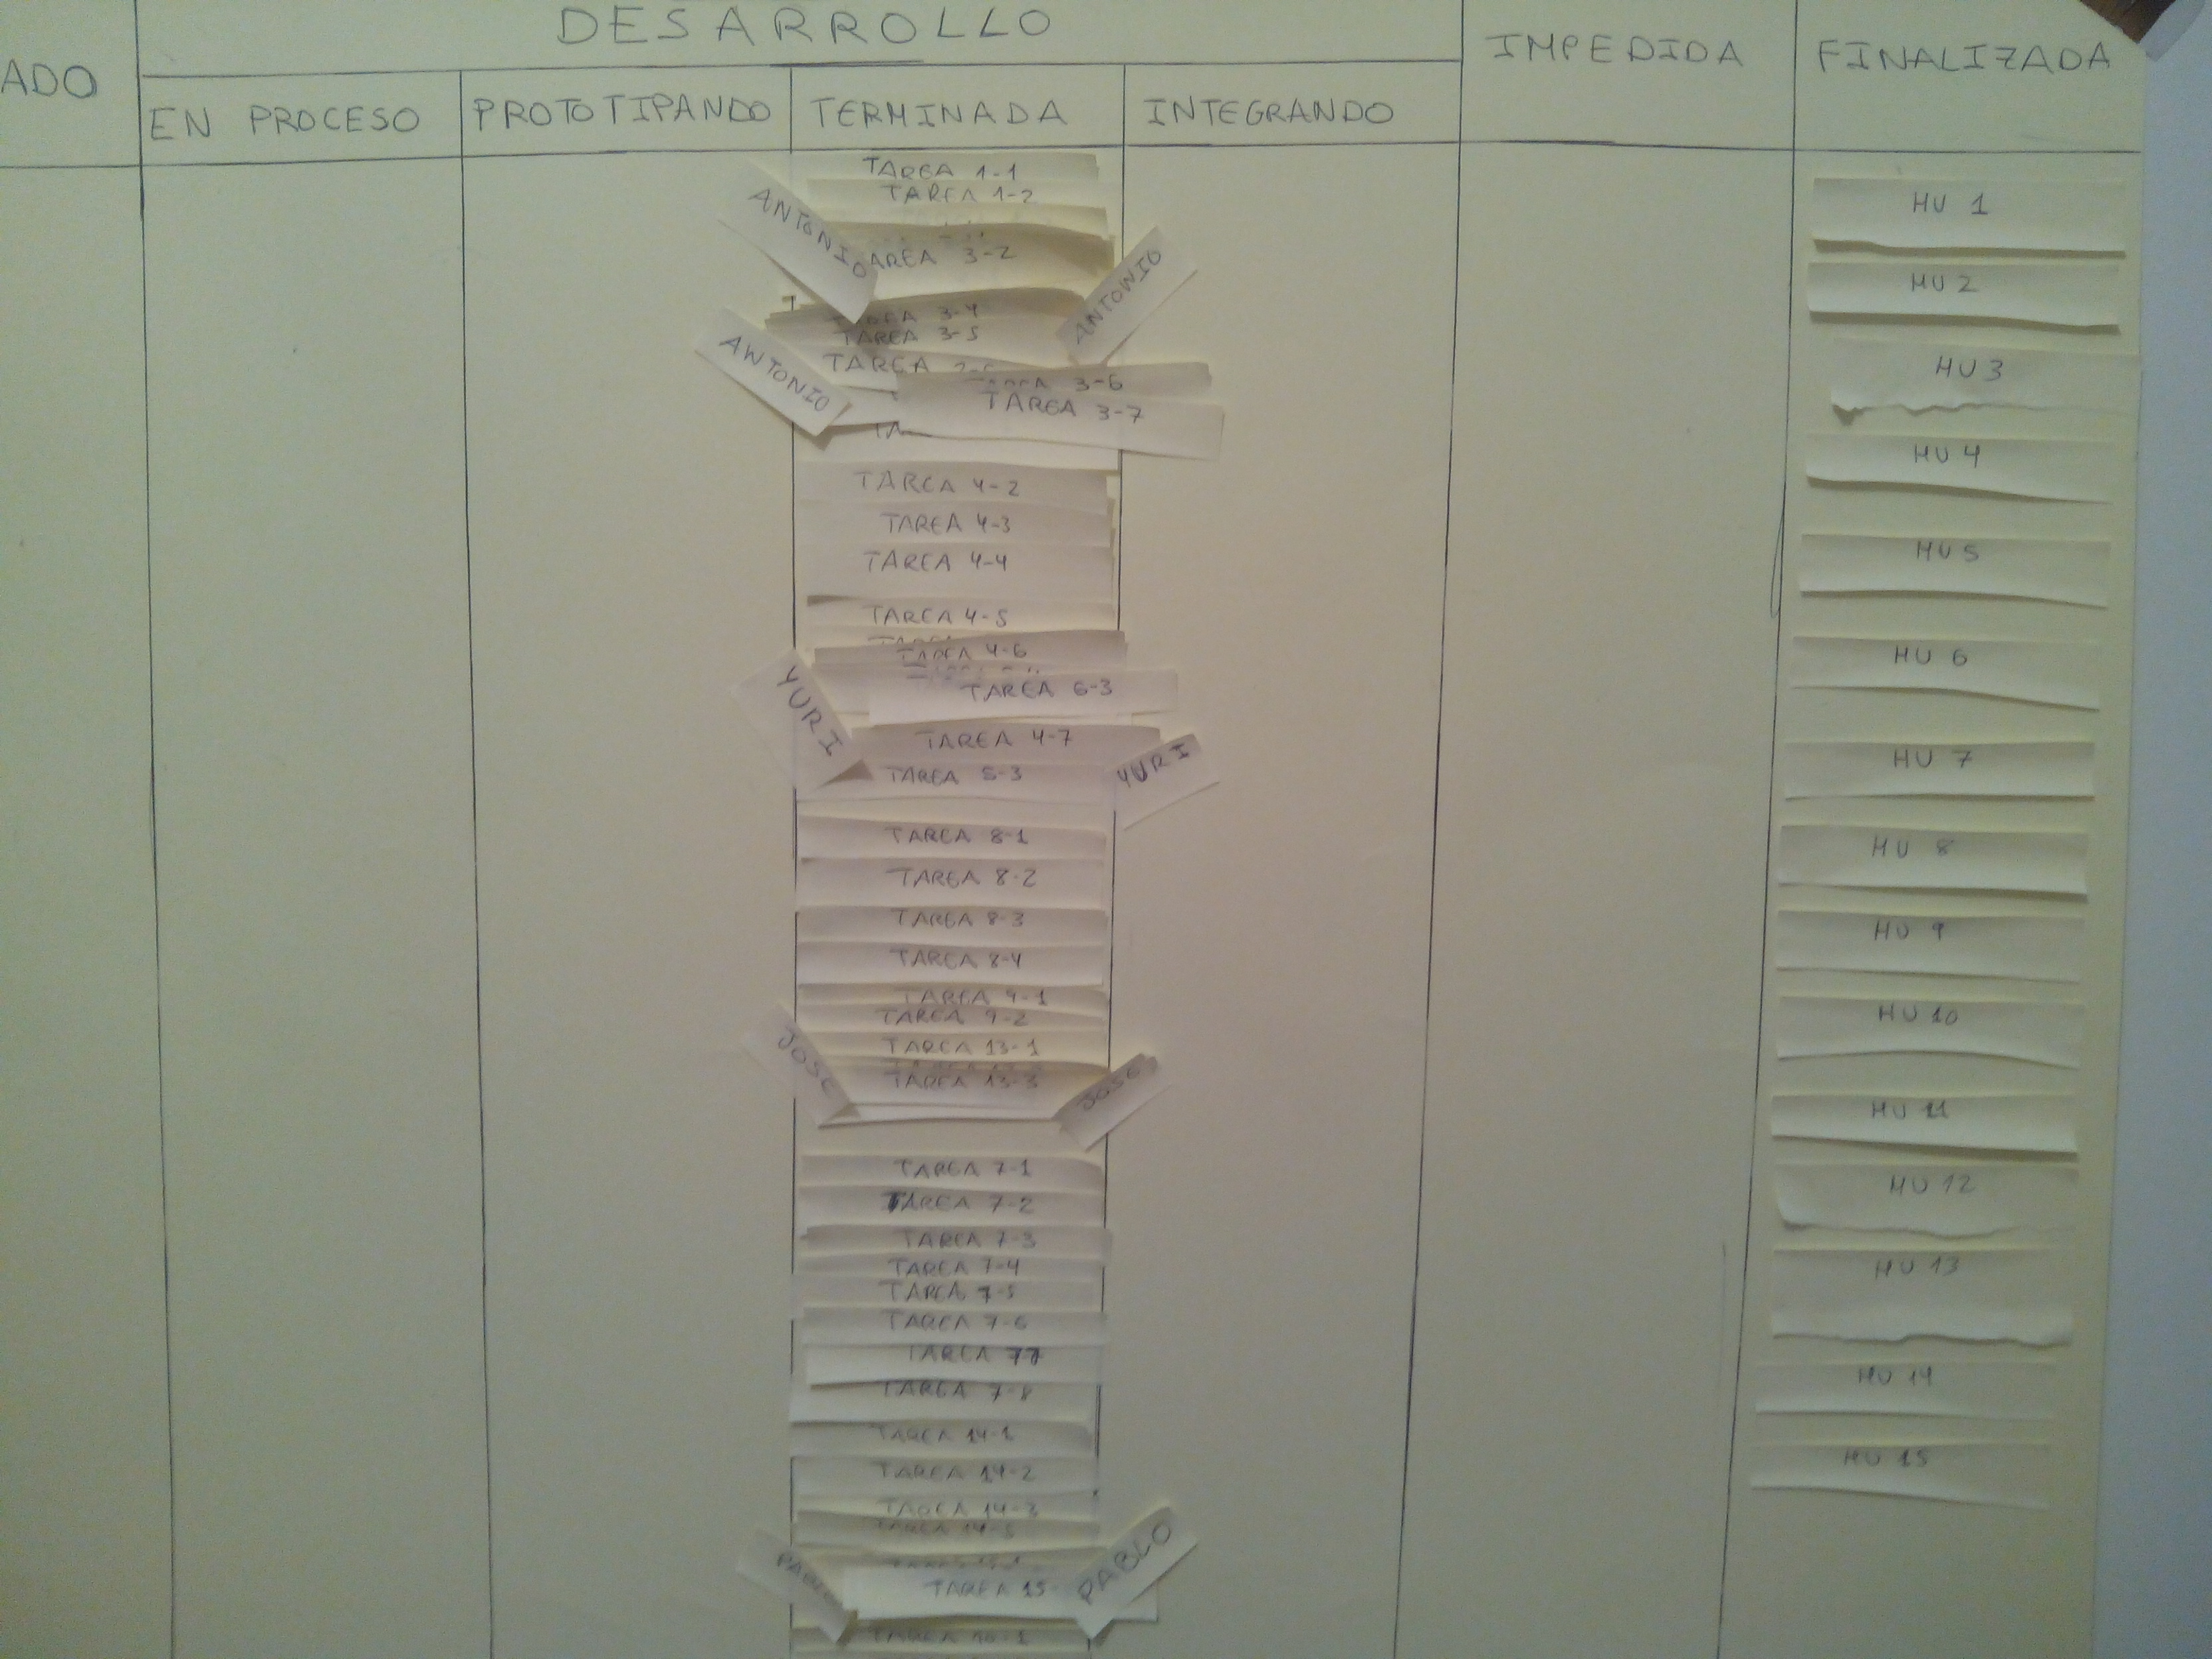 DESARROLLO
ADO
EN PROCESO
PROTOTIPANDO
TERMINADA
INTEGRANDO
IMPEDIDA
FINALIZADA
TAREA 1-1
TAREA 1-2
ANTONIO
AREA 3-2
ANTONIO
3-4
TAREA 3-5
ANTONIO
TAREA
3-6
TAREA 3-7
TAREA 4-2
TAREA 4-3
TAREA 4-4
TAREA 4-5
TAREA 4-6
YURI
TAREA 6-3
TAREA 4-7
YURI
TAREA 5-3
TAREA 8-1
TAREA 8-2
TAREA 8-3
TAREA 8-4
TAREA 9-1
TAREA 9-2
TAREA 13-1
JOSE
TAREA 13-3
JOSE
TAREA 7-1
TAREA 7-2
TAREA 7-3
TAREA 7-4
TAREA 7-5
TAREA 7-6
TAREA 77
TAREA 7-8
TAREA 14-1
TAREA 14-2
TAREA 14-3
TAREA 14-5
PABLO
TAREA 15-
PABLO
HU 1
HU 2
HU 3
HU 4
HU 5
HU 6
HU 7
HU 8
HU 9
HU 10
HU 11
HU 12
HU 13
HU 14
HU 15